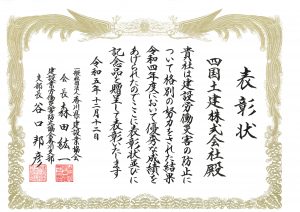 表彰状
四国土建株式会社殿
貴社は建設労働災害の防止に
ついて格別の努力をされた結果
令和四年度において優秀な成績を
あげられたのでここに表彰状並びに
記念品を贈呈して表彰いたします
令和五年十二月十二日
一般社団法人香川県建設業協会
会長 森田紘一
建設業労働災害防止協会香川支部
支部長 谷口邦彦